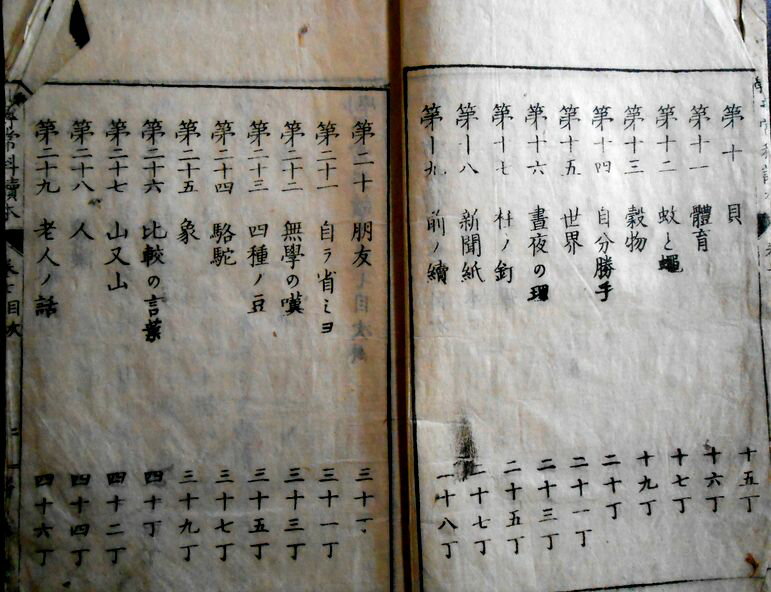 第十 貝 十五丁
第十一 體育 十六丁
第十二 蚊と蠅 十七丁
第十三 穀物 十九丁
第十四 自分勝手 二十丁
第十五 世界 二十一丁
第十六 晝夜の理 二十三丁
第十七 柱ノ釘 二十五丁
第十八 新聞紙 二十七丁
第十九 前ノ續 二十八丁
第二十 朋友 三十丁
第二十一 自ラ省ミヨ 三十一丁
第二十二 無學の嘆 三十三丁
第二十三 四種ノ豆 三十五丁
第二十四 駱駝 三十七丁
第二十五 象 三十九丁
第二十六 比較の言葉 四十丁
第二十七 山又山 四十二丁
第二十八 人 四十四丁
第二十九 老人ノ話 四十六丁
常科讀本 目次